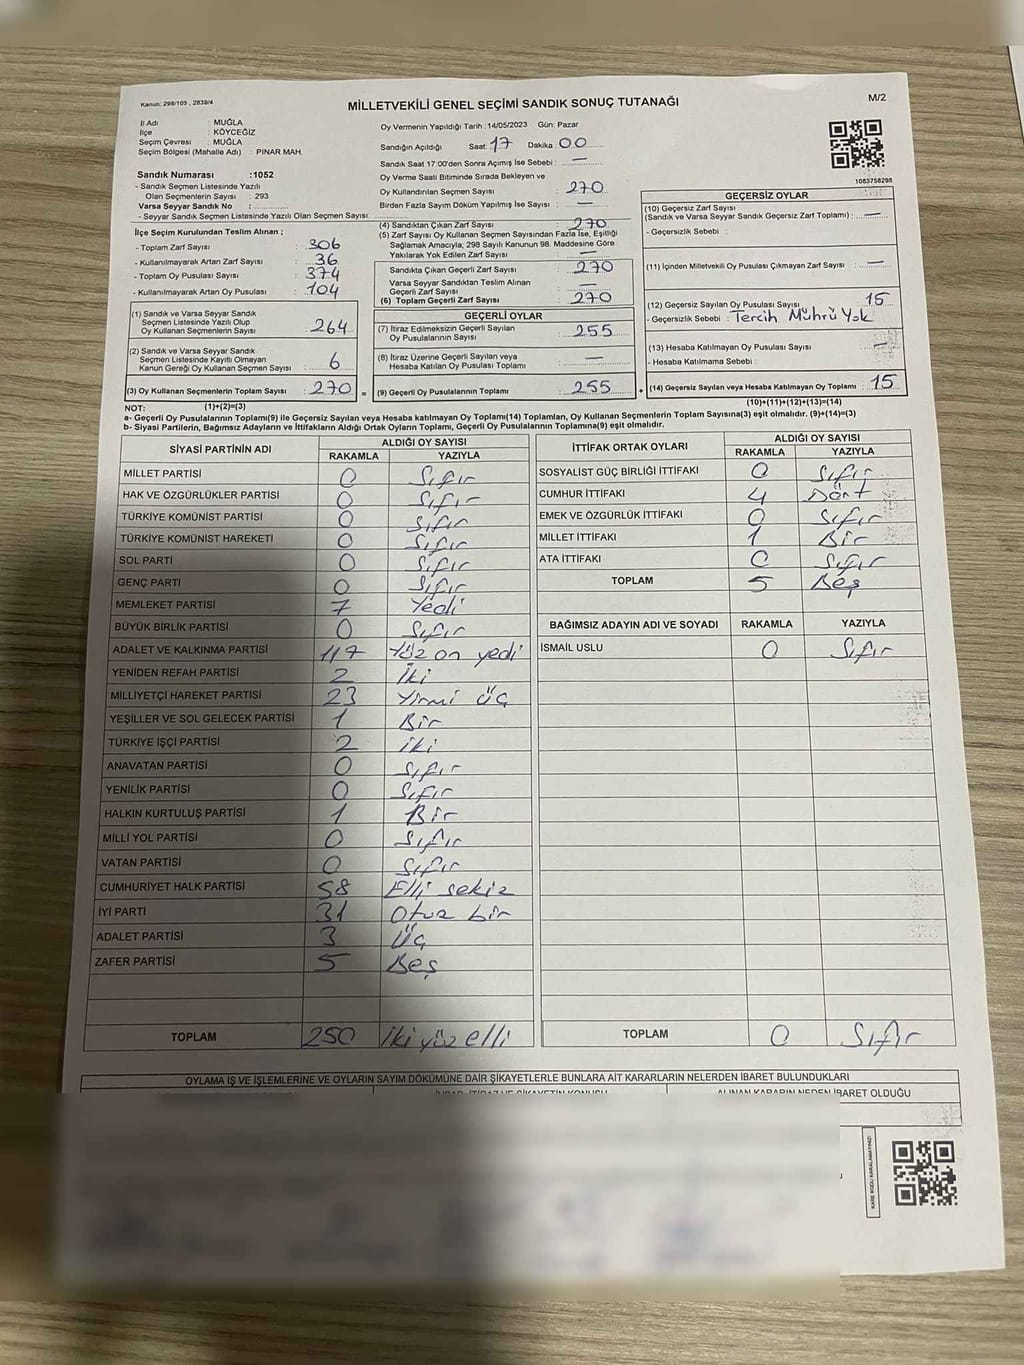 Kanun: 298/105 , 2839/4
MİLLETVEKİLİ GENEL SEÇİMİ SANDIK SONUÇ TUTANAĞI
M/2
İl Adı : MUĞLA
İlçe : KÖYCEĞİZ
Seçim Çevresi : MUĞLA
Seçim Bölgesi (Mahalle Adı) : PINAR MAH.
Sandık Numarası :1052
- Sandık Seçmen Listesinde Yazılı
Olan Seçmenlerin Sayısı : 293
Varsa Seyyar Sandık No :
- Seyyar Sandık Seçmen Listesinde Yazılı Olan Seçmen Sayısı
Oy Vermenin Yapıldığı Tarih : 14/05/2023 Gün: Pazar
Sandığın Açıldığı Saat: 17 Dakika: 00
Sandık Saat 17:00'den Sonra Açımış İse Sebebi : —
Oy Verme Saati Bitiminde Sırada Bekleyen ve
Oy Kullandırılan Seçmen Sayısı : 270
Birden Fazla Sayım Döküm Yapılmış İse Sayısı : —
1083758298
İlçe Seçim Kurulundan Teslim Alınan ;
- Toplam Zarf Sayısı : 306
- Kullanılmayarak Artan Zarf Sayısı : 36
- Toplam Oy Pusulası Sayısı : 374
- Kullanılmayarak Artan Oy Pusulası : 104
(1) Sandık ve Varsa Seyyar Sandık
Seçmen Listesinde Yazılı Olup
Oy Kullanan Seçmenlerin Sayısı : 264
(2) Sandık ve Varsa Seyyar Sandık
Seçmen Listesinde Kayıtlı Olmayan
Kanun Gereği Oy Kullanan Seçmen Sayısı : 6
(3) Oy Kullanan Seçmenlerin Toplam Sayısı : 270 =
(1)+(2)=(3)
(4) Sandıktan Çıkan Zarf Sayısı : 270
(5) Zarf Sayısı Oy Kullanan Seçmen Sayısından Fazla İse, Eşitliği
Sağlamak Amacıyla; 298 Sayılı Kanunun 98. Maddesine Göre
Yakılarak Yok Edilen Zarf Sayısı : —
Sandıkta Çıkan Geçerli Zarf Sayısı : 270
Varsa Seyyar Sandıktan Teslim Alınan
Geçerli Zarf Sayısı : —
(6) Toplam Geçerli Zarf Sayısı : 270
GEÇERLİ OYLAR
(7) İtiraz Edilmeksizin Geçerli Sayılan
Oy Pusulalarının Sayısı : 255
(8) İtiraz Üzerine Geçerli Sayılan veya
Hesaba Katılan Oy Pusulası Toplamı : —
(9) Geçerli Oy Pusulalarının Toplamı : 255 +
GEÇERSİZ OYLAR
(10) Geçersiz Zarf Sayısı
(Sandık ve Varsa Seyyar Sandık Geçersiz Zarf Toplamı) : —
- Geçersizlik Sebebi :
(11) İçinden Milletvekili Oy Pusulası Çıkmayan Zarf Sayısı : —
(12) Geçersiz Sayılan Oy Pusulası Sayısı : 15
- Geçersizlik Sebebi : Tercih Mührü Yok
(13) Hesaba Katılmayan Oy Pusulası Sayısı : —
- Hesaba Katılmama Sebebi :
(14) Geçersiz Sayılan veya Hesaba Katılmayan Oy Toplamı : 15
(10)+(11)+(12)+(13)=(14)
NOT:
a- Geçerli Oy Pusulalarının Toplamı(9) ile Geçersiz Sayılan veya Hesaba katılmayan Oy Toplamı(14) Toplamları, Oy Kullanan Seçmenlerin Toplam Sayısına(3) eşit olmalıdır. (9)+(14)=(3)
b- Siyasi Partilerin, Bağımsız Adayların ve İttifakların Aldığı Ortak Oyların Toplamı, Geçerli Oy Pusulalarının Toplamına(9) eşit olmalıdır.
SİYASİ PARTİNİN ADI ALDIĞI OY SAYISI
RAKAMLA YAZIYLA
MİLLET PARTİSİ 0 Sıfır
HAK VE ÖZGÜRLÜKLER PARTİSİ 0 Sıfır
TÜRKİYE KOMÜNİST PARTİSİ 0 Sıfır
TÜRKİYE KOMÜNİST HAREKETİ 0 Sıfır
SOL PARTİ 0 Sıfır
GENÇ PARTİ 0 Sıfır
MEMLEKET PARTİSİ 7 Yedi
BÜYÜK BİRLİK PARTİSİ 0 Sıfır
ADALET VE KALKINMA PARTİSİ 117 Yüz on yedi
YENİDEN REFAH PARTİSİ 2 İki
MİLLİYETÇİ HAREKET PARTİSİ 23 Yirmi üç
YEŞİLLER VE SOL GELECEK PARTİSİ 1 Bir
TÜRKİYE İŞÇİ PARTİSİ 2 iki
ANAVATAN PARTİSİ 0 Sıfır
YENİLİK PARTİSİ 0 Sıfır
HALKIN KURTULUŞ PARTİSİ 1 Bir
MİLLİ YOL PARTİSİ 0 Sıfır
VATAN PARTİSİ 0 Sıfır
CUMHURİYET HALK PARTİSİ 58 Elli sekiz
İYİ PARTİ 31 Otuz bir
ADALET PARTİSİ 3 Üç
ZAFER PARTİSİ 5 Beş
TOPLAM 250 İki yüz elli
İTTİFAK ORTAK OYLARI ALDIĞI OY SAYISI
RAKAMLA YAZIYLA
SOSYALİST GÜÇ BİRLİĞİ İTTİFAKI 0 Sıfır
CUMHUR İTTİFAKI 4 Dört
EMEK VE ÖZGÜRLÜK İTTİFAKI 0 Sıfır
MİLLET İTTİFAKI 1 Bir
ATA İTTİFAKI 0 Sıfır
TOPLAM 5 Beş
BAĞIMSIZ ADAYIN ADI VE SOYADI RAKAMLA YAZIYLA
İSMAİL USLU 0 Sıfır
TOPLAM 0 Sıfır
OYLAMA İŞ VE İŞLEMLERİNE VE OYLARIN SAYIM DÖKÜMÜNE DAİR ŞİKAYETLERLE BUNLARA AİT KARARLARIN NELERDEN İBARET BULUNDUKLARI
ALINAN KARARIN NEDEN İBARET OLDUĞU
KARE KODU KARALAMAYINIZ!